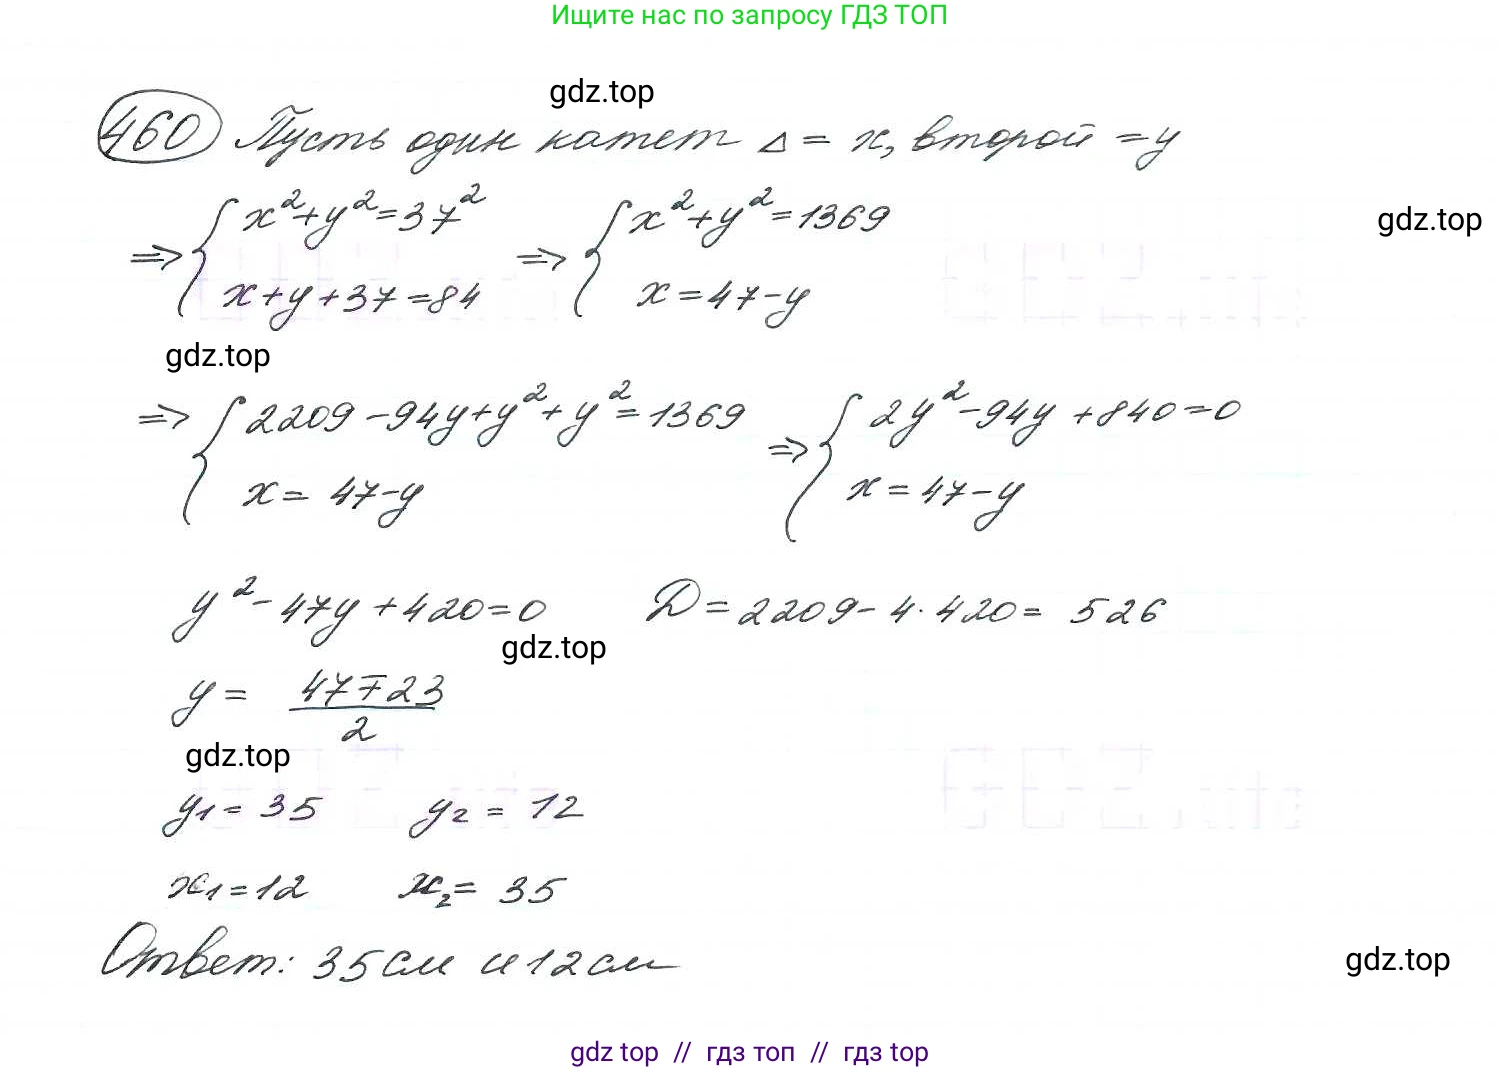 Ищите нас по запросу ГДЗ ТОП
gdz.top
460 Пусть один катет Δ = x, второй = y
⇒ { x² + y² = 37² ⇒ { x² + y² = 1369
gdz.top
x + y + 37 = 84 x = 47 - y
gdz.top
⇒ { 2209 - 94y + y² + y² = 1369 ⇒ { 2y² - 94y + 840 = 0
x = 47 - y x = 47 - y
y² - 47y + 420 = 0 D = 2209 - 4 · 420 = 526
gdz.top
y = (47 ∓ 23)/2
gdz.top
y₁ = 35 y₂ = 12
x₁ = 12 x₂ = 35
Ответ: 35 см и 12 см
gdz.top
gdz top // гдз топ // гдз top